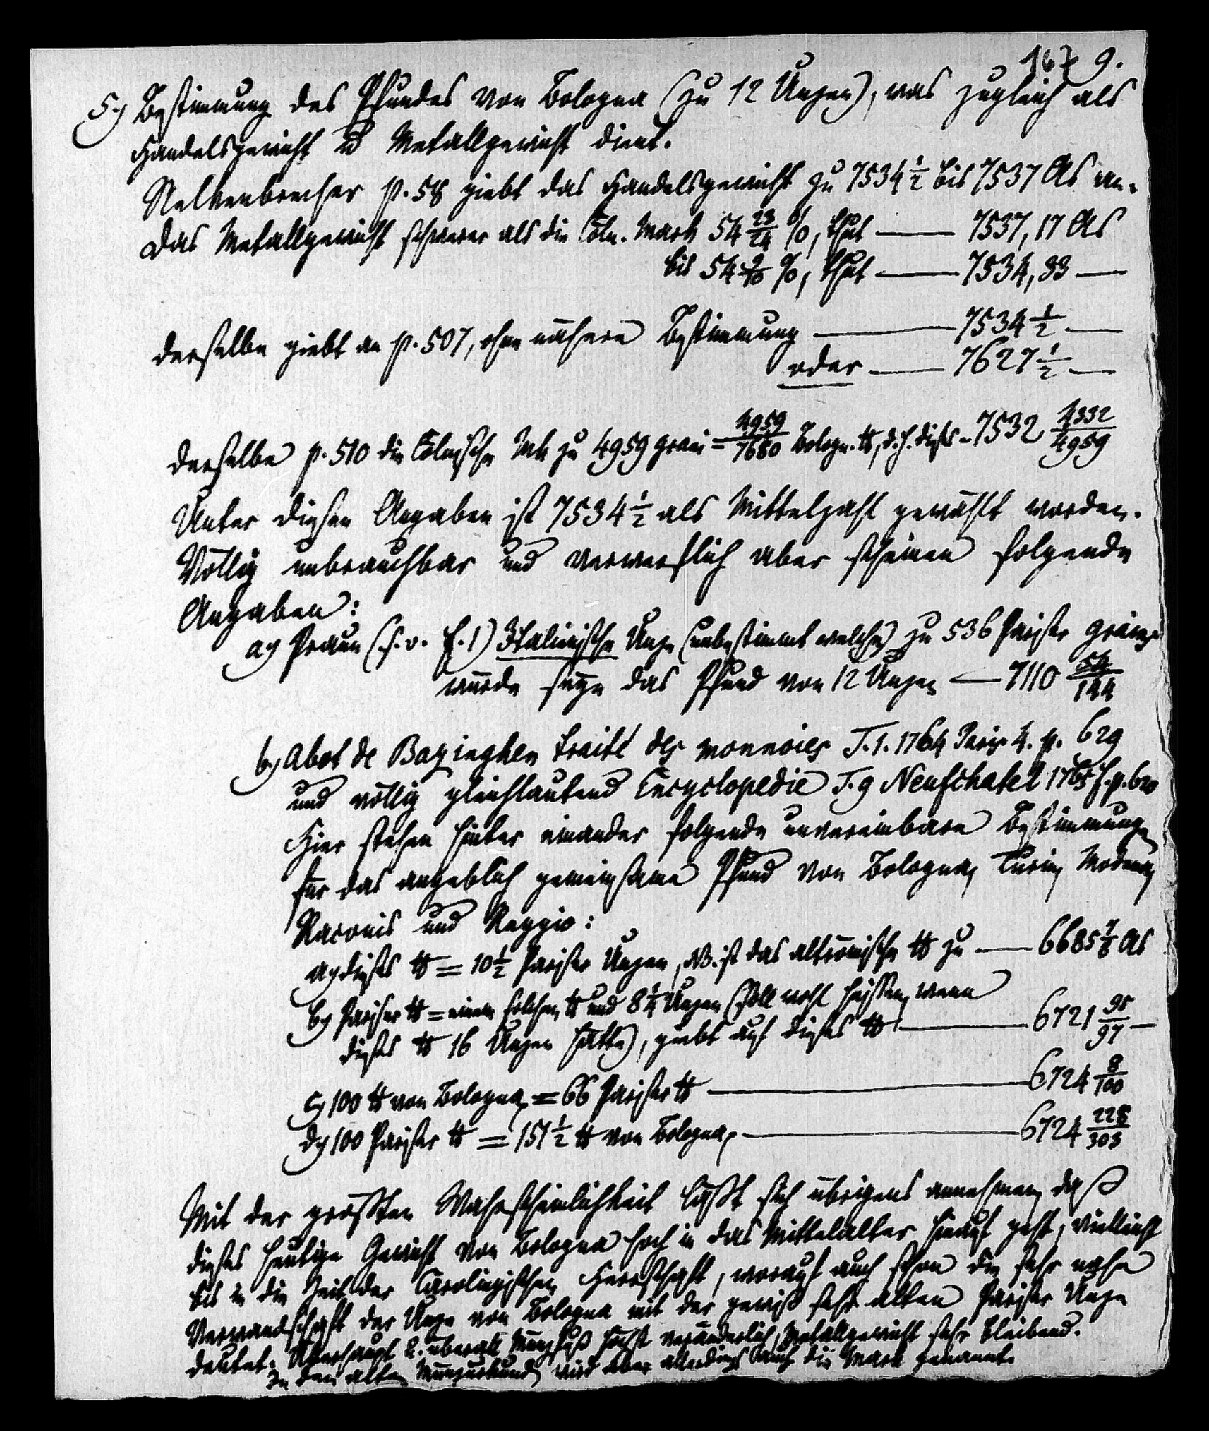 167 9.
5) Bestimmung des Pfundes von Bologna (zu 12 Unzen), was zugleich als
Handelsgewicht u Metallgewicht dient.
Nelkenbrecher p. 58 giebt das Handelsgewicht zu 7534 1/2 bis 7537 As an.
Das Metallgewicht schwerer als die Cöln. Mark 54 23/24 %, thut — 7537,17 As
bis 54 9/10 %, thut — 7534,33 —
derselbe giebt an p. 507, ohne nähere Bestimmung — 7534 1/2 —
oder — 7627 1/2 —
derselbe p. 510 die Cölnische Mk zu 4959 grani = 4959/7680 Bologn. ℔, d. h. dieses — 7532 4332/4959
Unter diesen Angaben ist 7534 1/2 als Mittelzahl gewählt worden.
Völlig unbrauchbar und verwerflich aber scheinen folgende
Angaben:
a) Praun (s. v. f. 1) Italienische Unze (unbestimmt welche) zu 536 Pariser grains
würde seyn das Pfund von 12 Unzen — 7110 54/144
b) Abot de Bazinghen traité des monnoies T. 1. 1764 Paris 4. p. 629
und völlig gleichlautend Encyclopedie T. 9 Neufchatel 1765 f. p. 620
Hier stehen hinter einander folgende unvereinbare Bestimmungen
für das angeblich gemeinsame Pfund von Bologna, Turin, Modena,
Raconis und Reggio:
a) dieses ℔ = 10 1/2 Pariser Unzen, NB. ist das altrömische ℔ zu — 6685 7/8 As
b) Pariser ℔ = einem solchen ℔ und 8 1/4 Unzen (soll wohl heissen, wenn
dieses ℔ 16 Unzen hätte), giebt auf dieses ℔ — 6721 95/97 —
c) 100 ℔ von Bologna, = 66 Pariser ℔ — 6724 8/100
d) 100 Pariser ℔ = 151 1/2 ℔ von Bologna, — 6724 228/303
Mit der größten Wahrscheinlichkeit läßt sich übrigens annehmen, daß
dieses heutige Gewicht von Bologna hoch in das Mittelalter hinauf geht, vielleicht
bis in die Zeit der Carolingischen Herrschaft, worauf auch schon die sehr nahe
Verwandschaft der Unze von Bologna mit der gewiß sehr alten Pariser Unze
deutet. Ueberhaupt überall Münzfuß höchst veränderlich, Metallgewicht sehr bleibend.
In den alten Münzurkunden wird aber allerdings auch die Mark genannt.